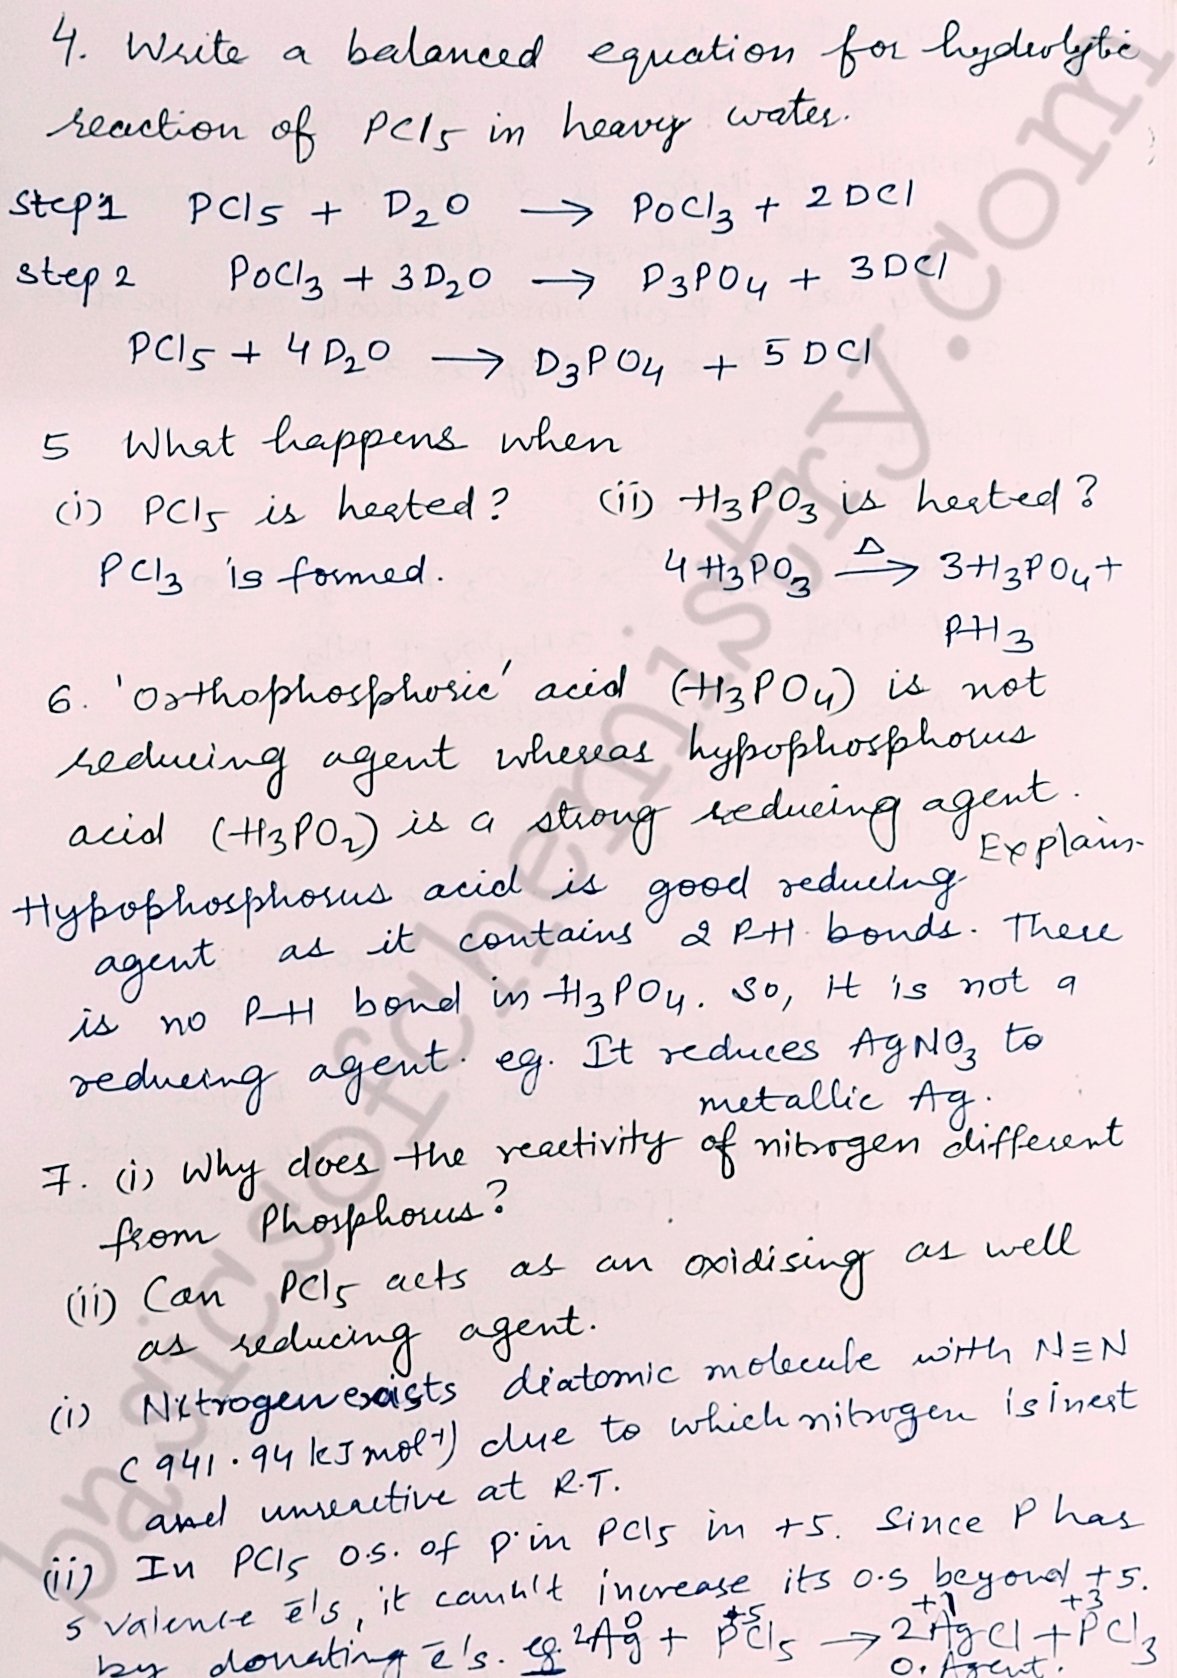 4. Write a balanced equation for hydrolytic
reaction of PCl5 in heavy water.
Step 1 PCl5 + D2O → POCl3 + 2DCl
Step 2 POCl3 + 3D2O → D3PO4 + 3DCl
PCl5 + 4D2O → D3PO4 + 5DCl
5 What happens when
(i) PCl5 is heated? (ii) H3PO3 is heated?
PCl3 is formed. 4H3PO3 Δ→ 3H3PO4 +
PH3
6. 'Orthophosphoric' acid (H3PO4) is not
reducing agent whereas hypophosphorus
acid (H3PO2) is a strong reducing agent.
Explain.
Hypophosphorus acid is good reducing
agent as it contains 2 P-H bonds. There
is no P-H bond in H3PO4. So, it is not a
reducing agent. eg. It reduces AgNO3 to
metallic Ag.
7. (i) Why does the reactivity of nitrogen different
from Phosphorus?
(ii) Can PCl5 acts as an oxidising as well
as reducing agent.
(i) Nitrogen exists diatomic molecule with N≡N
(941.94 kJ mol-1) due to which nitrogen is inert
and unreactive at R.T.
(ii) In PCl5 O.S. of P in PCl5 in +5. Since P has
5 valence e̅'s, it can't increase its O.S beyond +5.
by donating e̅'s. eg. 2Ag0 + P+5Cl5 → 2Ag+1Cl + P+3Cl3
O. Agent.
basicsofchemistry.com